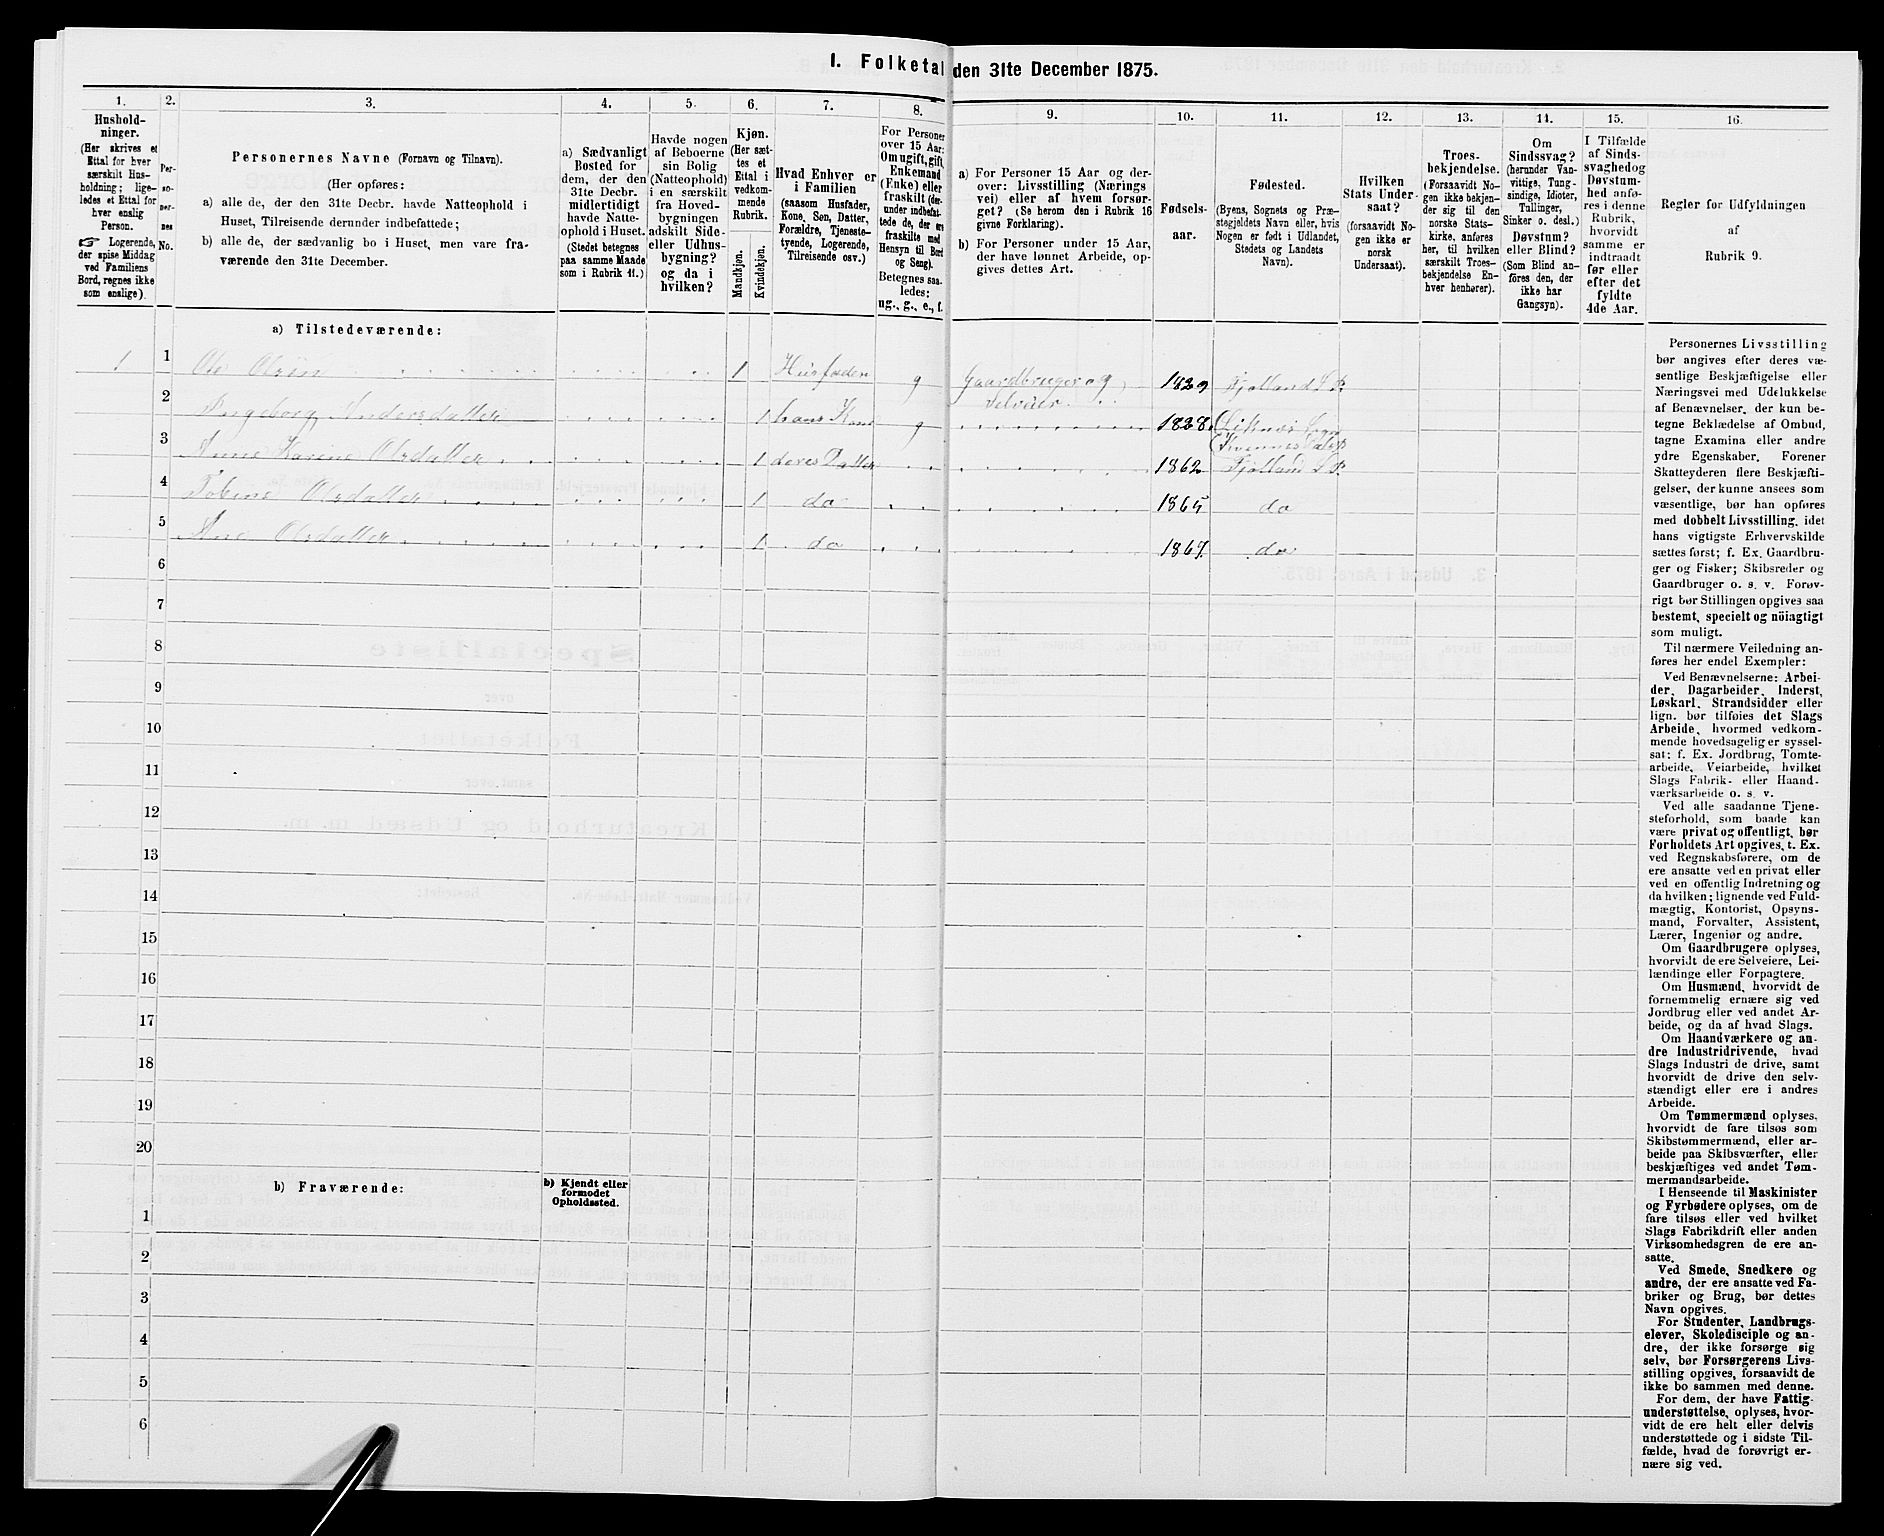 I. Folketal den 31te December 1875.
1.
Hushold-
ninger.
(Her skrives et
Ettal for hver
særskilt Hus-
holdning; lige-
ledes et Ettal for
hver enslig
Person.
☞ Logerende,
der spise Middag
ved Familiens
Bord, regnes ikke
som enslige).
2.
Per-
so-
ner-
nes
No.
3.
Personernes Navne (Fornavn og Tilnavn).
(Her opføres:
a) alle de, der den 31te Decbr. havde Natteophold i
Huset, Tilreisende derunder indbefattede;
b) alle de, der sædvanlig bo i Huset, men vare fra-
værende den 31te December.
4.
a) Sædvanligt
Bosted for
dem, der den
31te Decbr.
midlertidigt
havde Natte-
ophold i Huset.
(Stedet betegnes
paa samme Maade
som i Rubrik 11.)
5.
Havde nogen
af Beboerne
sin Bolig
(Natteophold)
i en særskilt
fra Hoved-
bygningen
adskilt Side-
eller Udhus-
bygning?
og da i
hvilken?
6.
Kjøn.
(Her sæt-
tes et
Ettal i
vedkom-
mende
Rubrik.
Mandkjøn.
Kvindekjøn.
7.
Hvad Enhver er
i Familien
(saasom Husfader,
Kone, Søn, Datter,
Forældre, Tjeneste-
tyende, Logerende,
Tilreisende osv.)
8.
For Personer
over 15 Aar:
Om ugift, gift,
Enkemand
(Enke) eller
fraskilt (der-
under indbefat-
tede de, der ere
fraskilte med
Hensyn til Bord
og Seng).
Betegnes saa-
ledes:
ug., g., e., f.
9.
a) For Personer 15 Aar og der-
over: Livsstilling (Nærings
vei) eller af hvem forsør-
get? (Se herom den i Rubrik 16
givne Forklaring).
b) For Personer under 15 Aar,
der have lønnet Arbeide, op-
gives dettes Art.
10.
Fødsels-
aar.
11.
Fødested.
(Byens, Sognets og Præ-
stegjeldets Navn eller, hvis
Nogen er født i Udlandet,
Stedets og Landets
Navn).
12.
Hvilken
Stats Under-
saat?
(forsaavidt No-
gen ikke er
norsk
Undersaat).
13.
Troes-
bekjendelse.
(Forsaavidt No-
gen ikke bekjen-
der sig til den
norske Stats-
kirke, anføres
her, til hvilken
særskilt Troes-
bekjendelse En-
hver henhører).
14.
Om
Sindssvag?
(herunder Van-
vittige, Tung-
sindige, Idioter,
Tullinger,
Sinker o. desl.)
Døvstum?
eller Blind?
(Som Blind an-
føres den, der
ikke har
Gangsyn).
15.
I Tilfælde
af Sinds-
svaghed og
Døvstum-
hed anfø-
res i denne
Rubrik,
hvorvidt
samme er
indtraadt
før eller
efter det
fyldte
4de Aar.
16.
Regler for Udfyldningen
af
Rubrik 9.
a) Tilstedeværende:
1 1 Ole Olsen 1 Husfader g Gaardbruger og Selveier 1829 Fjotland S. P.
2 Ingeborg Andersdatter 1 hans Kone g 1838 Liknes Sogn Kvinesdal P
3 Anne Karine Olsdatter 1 deres Datter 1862 Fjotland S. P.
4 Tobine Olsdatter 1 do 1865 do
5 Ane Olsdatter 1 do 1867 do
6
7
8
9
10
11
12
13
14
15
16
17
18
19
20
b) Fraværende:
b) Kjendt eller
formodet
Opholdssted.
1
2
3
4
5
6
Personernes Livsstilling
bør angives efter deres væ-
sentlige Beskjæftigelse eller
Næringsvei med Udelukkelse
af Benævnelser, der kun be-
tegne Beklædelse af Ombud,
tagne Examina eller andre
ydre Egenskaber. Forener
Skatteyderen flere Beskjæfti-
gelser, der kunne ansees som
væsentlige, bør han opføres
med dobbelt Livsstilling, idet
hans vigtigste Erhvervskilde
sættes først; f. Ex. Gaardbru-
ger og Fisker; Skibsreder og
Gaardbruger o. s. v. Forøv-
rigt bør Stillingen opgives saa
bestemt, specielt og nöiagtigt
som muligt.
Til nærmere Veiledning an-
føres her endel Exempler:
Ved Benævnelserne: Arbei-
der, Dagarbeider, Inderst,
Løskarl, Strandsidder eller
lign. bør tilføies det Slags
Arbeide, hvormed vedkom-
mende hovedsagelig er syssel-
sat; f. Ex. Jordbrug, Tomte-
arbeide, Veiarbeide, hvilket
Slags Fabrik- eller Haand-
værksarbeide o. s. v.
Ved alle saadanne Tjene-
steforhold, som baade kan
være privat og offentligt, bør
Forholdets Art opgives, t. Ex.
ved Regnskabsførere, om de
ere ansatte ved en privat eller
ved en offentlig Indretning og
da hvilken; lignende ved Fuld-
mægtig, Kontorist, Opsyns-
mand, Forvalter, Assistent,
Lærer, Ingeniør og andre.
Om Gaardbrugere oplyses,
hvorvidt de ere Selveiere, Lei-
lændinge eller Forpagtere.
Om Husmænd, hvorvidt de
fornemmelig ernære sig ved
Jordbrug eller ved andet Ar-
beide, og da af hvad Slags.
Om Haandværkere og an-
dre Industridrivende, hvad
Slags Industri de drive, samt
hvorvidt de drive den selv-
stændigt eller ere i andres
Arbeide.
Om Tømmermænd oplyses,
hvorvidt de fare tilsøs som
Skibstømmermænd, eller ar-
beide paa Skibsværfter, eller
beskjæftiges ved andet Tøm-
mermandsarbeide.
I Henseende til Maskinister
og Fyrbødere oplyses, om de
fare tilsøs eller ved hvilket
Slags Fabrikdrift eller anden
Virksomhedsgren de ere an-
satte.
Ved Smede, Snedkere og
andre, der ere ansatte ved Fa-
briker og Brug, bør dettes
Navn opgives.
For Studenter, Landbrugs-
elever, Skoledisciple og an-
dre, der ikke forsørge sig
selv, bør Forsørgerens Livs-
stilling opgives, forsaavidt de
ikke bo sammen med denne.
For dem, der have Fattig-
understøttelse, oplyses, hvor-
vidt de ere helt eller delvis
understøttede og i sidste Til-
fælde, hvad de forøvrigt er-
nære sig ved.